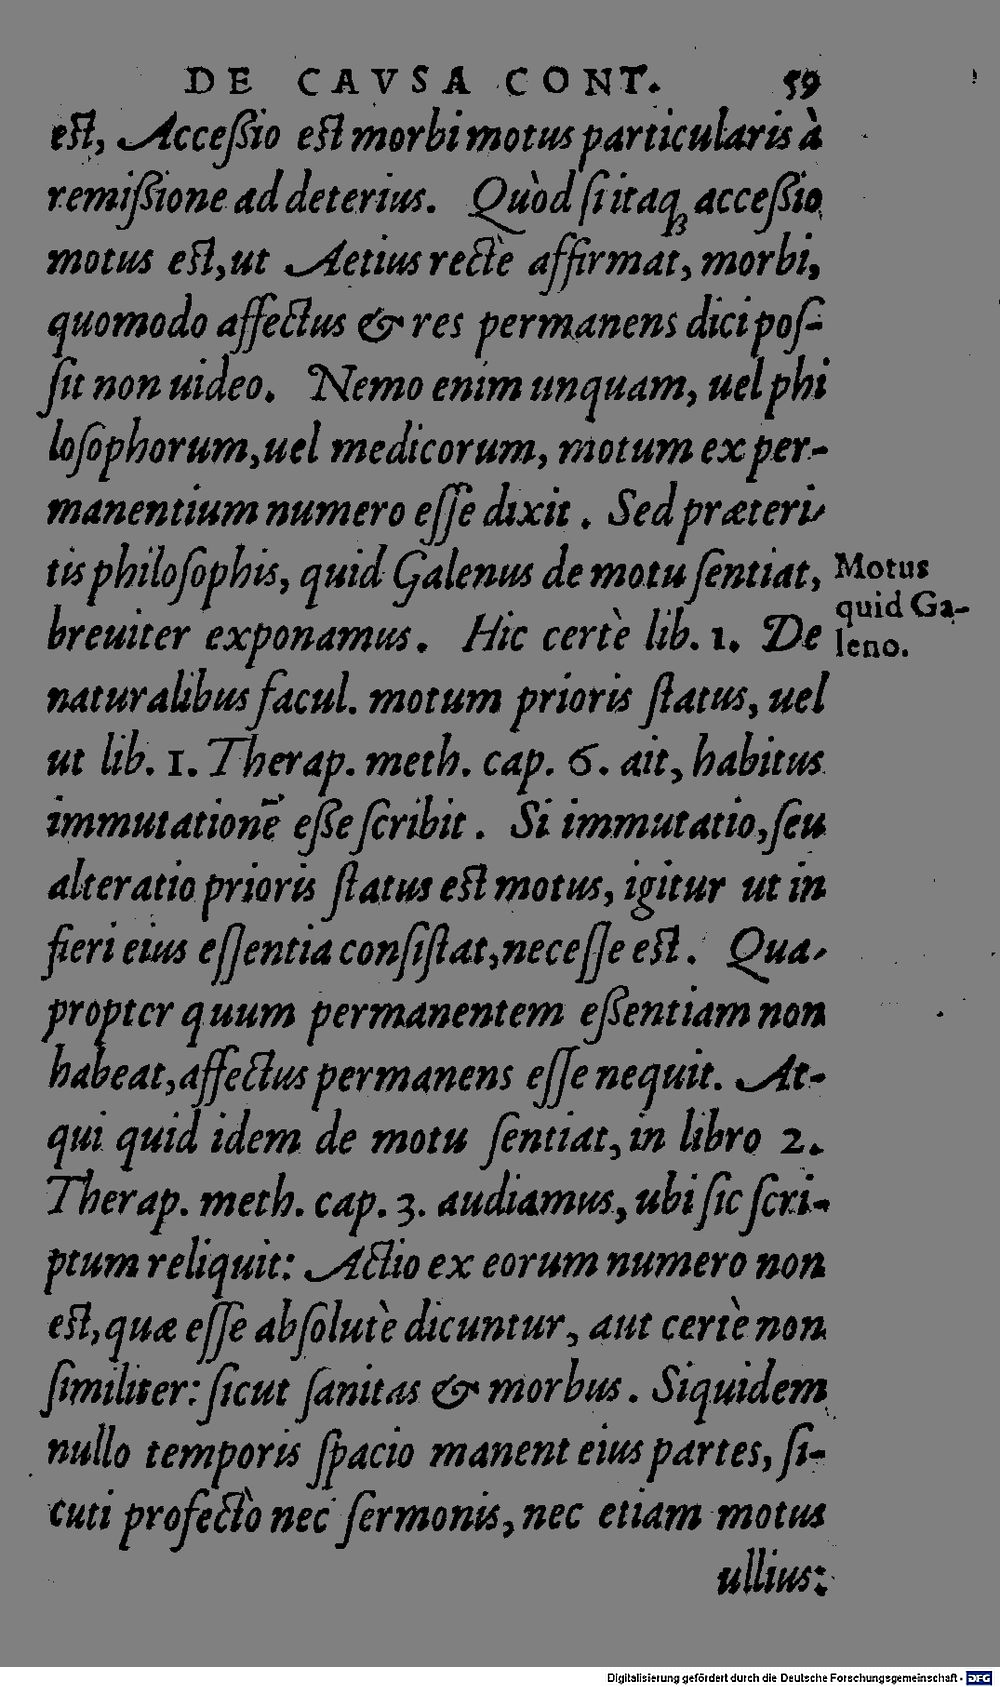 DE CAVSA CONT. 59
est, Accessio est morbi motus particularis à
remissione ad deterius. Quòd si itaqꝫ accessio
motus est, ut Aetius rectè affirmat, morbi,
quomodo affectus & res permanens dici pos-
sit non uideo. Nemo enim unquam, uel phi
losophorum, uel medicorum, motum ex per-
manentium numero esse dixit. Sed præteri-
tis philosophis, quid Galenus de motu sentiat,
breuiter exponamus. Hic certè lib. 1. De
naturalibus facul. motum prioris status, uel
ut lib. 1. Therap. meth. cap. 6. ait, habitus
immutationē esse scribit. Si immutatio, seu
alteratio prioris status est motus, igitur ut in
fieri eius essentia consistat, necesse est. Qua-
propter quum permanentem essentiam non
habeat, affectus permanens esse nequit. At-
qui quid idem de motu sentiat, in libro 2.
Therap. meth. cap. 3. audiamus, ubi sic scri-
ptum reliquit: Actio ex eorum numero non
est, quæ esse absolutè dicuntur, aut certè non
similiter: sicut sanitas & morbus. Siquidem
nullo temporis spacio manent eius partes, si-
cuti profectò nec sermonis, nec etiam motus
ullius:
Motus
quid Ga-
leno.
Digitalisierung gefördert durch die Deutsche Forschungsgemeinschaft - DFG